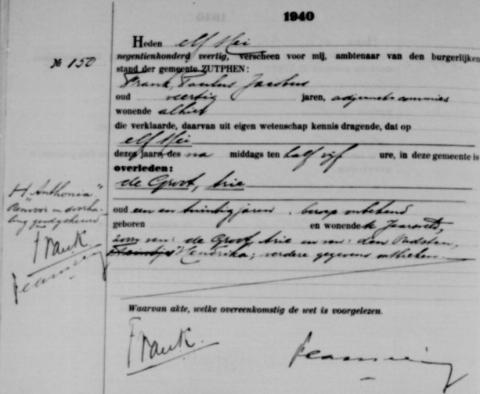 1940
№ 150
Heden elf Mei
negentienhonderd veertig, verscheen voor mij, ambtenaar van den burgerlijken
stand der gemeente ZUTPHEN:
Frank, Paulus Jacobus
oud veertig jaren, adjunct commies
wonende alhier
die verklaarde, daarvan uit eigen wetenschap kennis dragende, dat op
elf Mei
dezes jaars, des na middags ten half vijf ure, in deze gemeente is
overleden:
de Groot, Arie
oud een en twintig jaren, beroep onbekend
geboren en wonende te
zoon van: de Groot, Arie en van: den
Hendrika; verdere gegevens ontbreken.
"Anthonia"
goedgekeurd
Frank
Waarvan akte, welke overeenkomstig de wet is voorgelezen.
Frank.